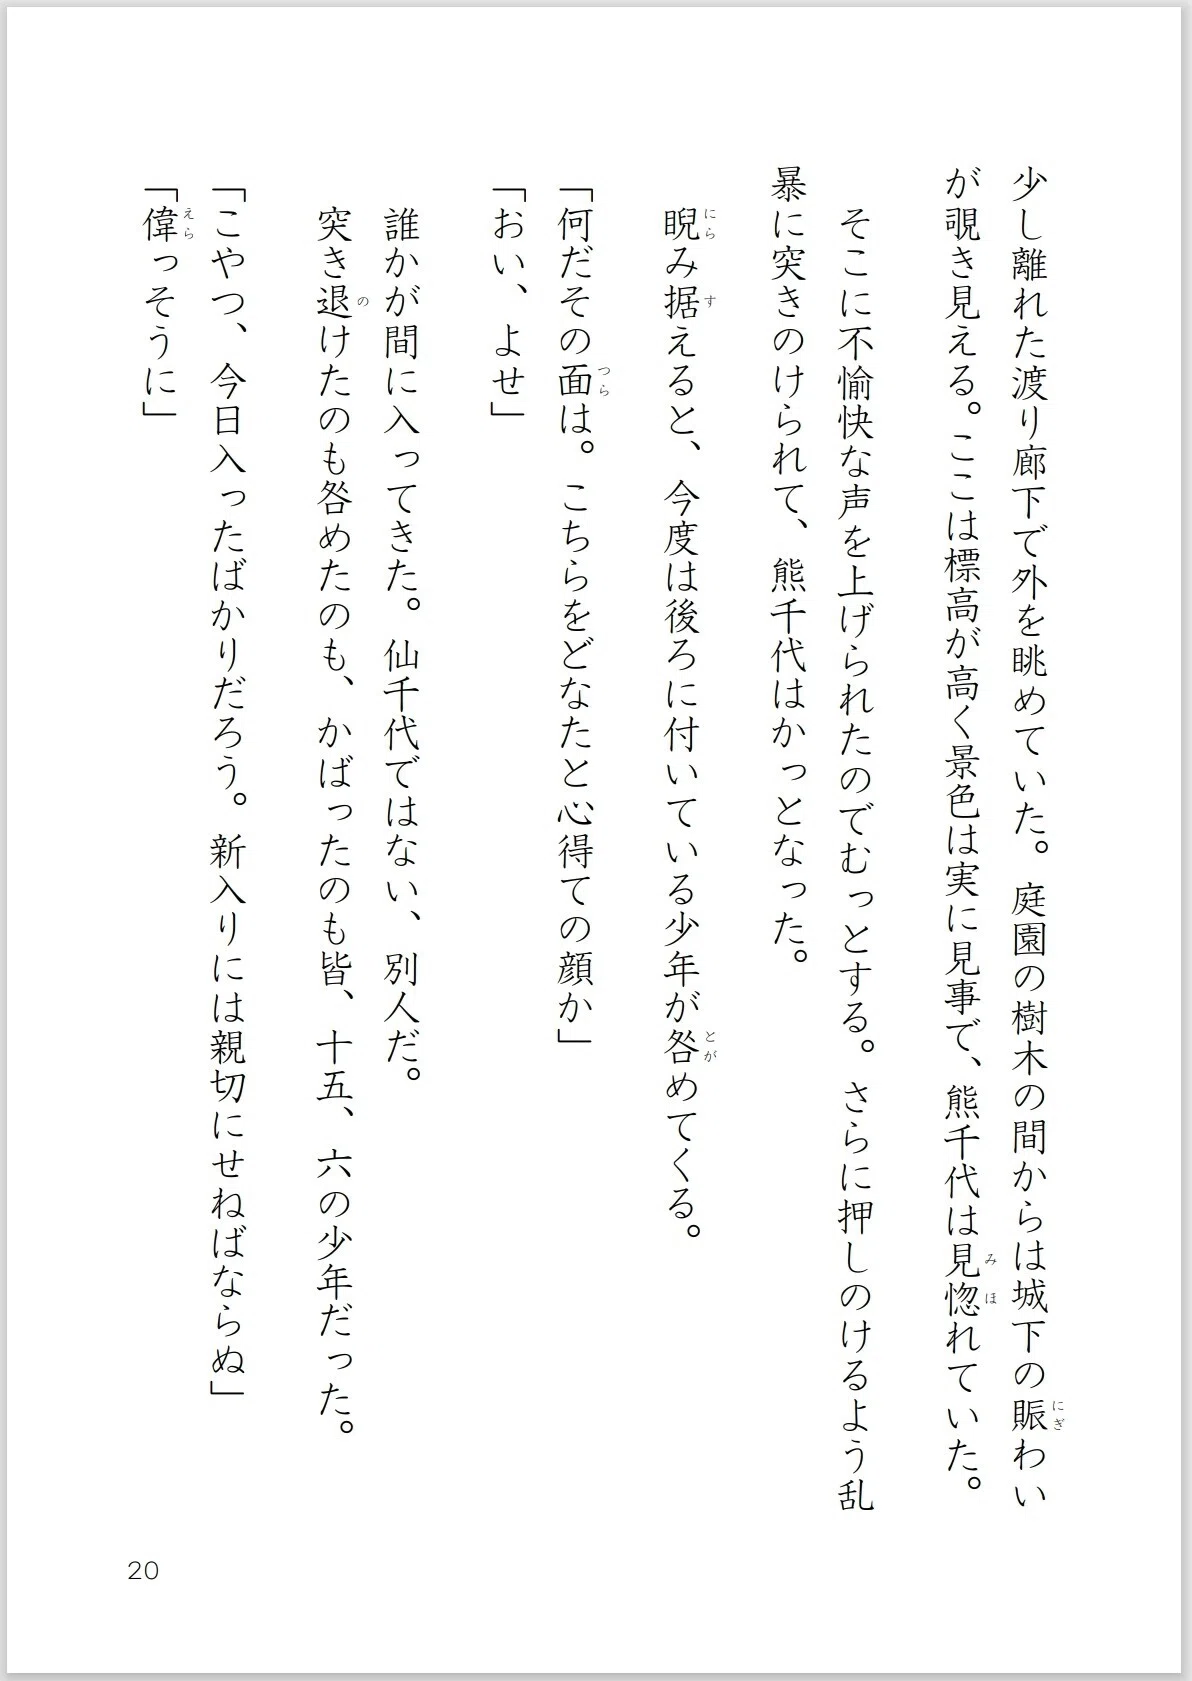 少し離れた渡り廊下で外を眺めていた。庭園の樹木の間からは城下の賑わい
が覗き見える。ここは標高が高く景色は実に見事で、熊千代は見惚れていた。
そこに不愉快な声を上げられたのでむっとする。さらに押しのけるよう乱
暴に突きのけられて、熊千代はかっとなった。
睨み据えると、今度は後ろに付いている少年が咎めてくる。
「何だその面は。こちらをどなたと心得ての顔か」
「おい、よせ」
誰かが間に入ってきた。仙千代ではない、別人だ。
突き退けたのも咎めたのも、かばったのも皆、十五、六の少年だった。
「こやつ、今日入ったばかりだろう。新入りには親切にせねばならぬ」
「偉っそうに」
にぎ
みほ
にら
す
とが
つら
の
えら
20